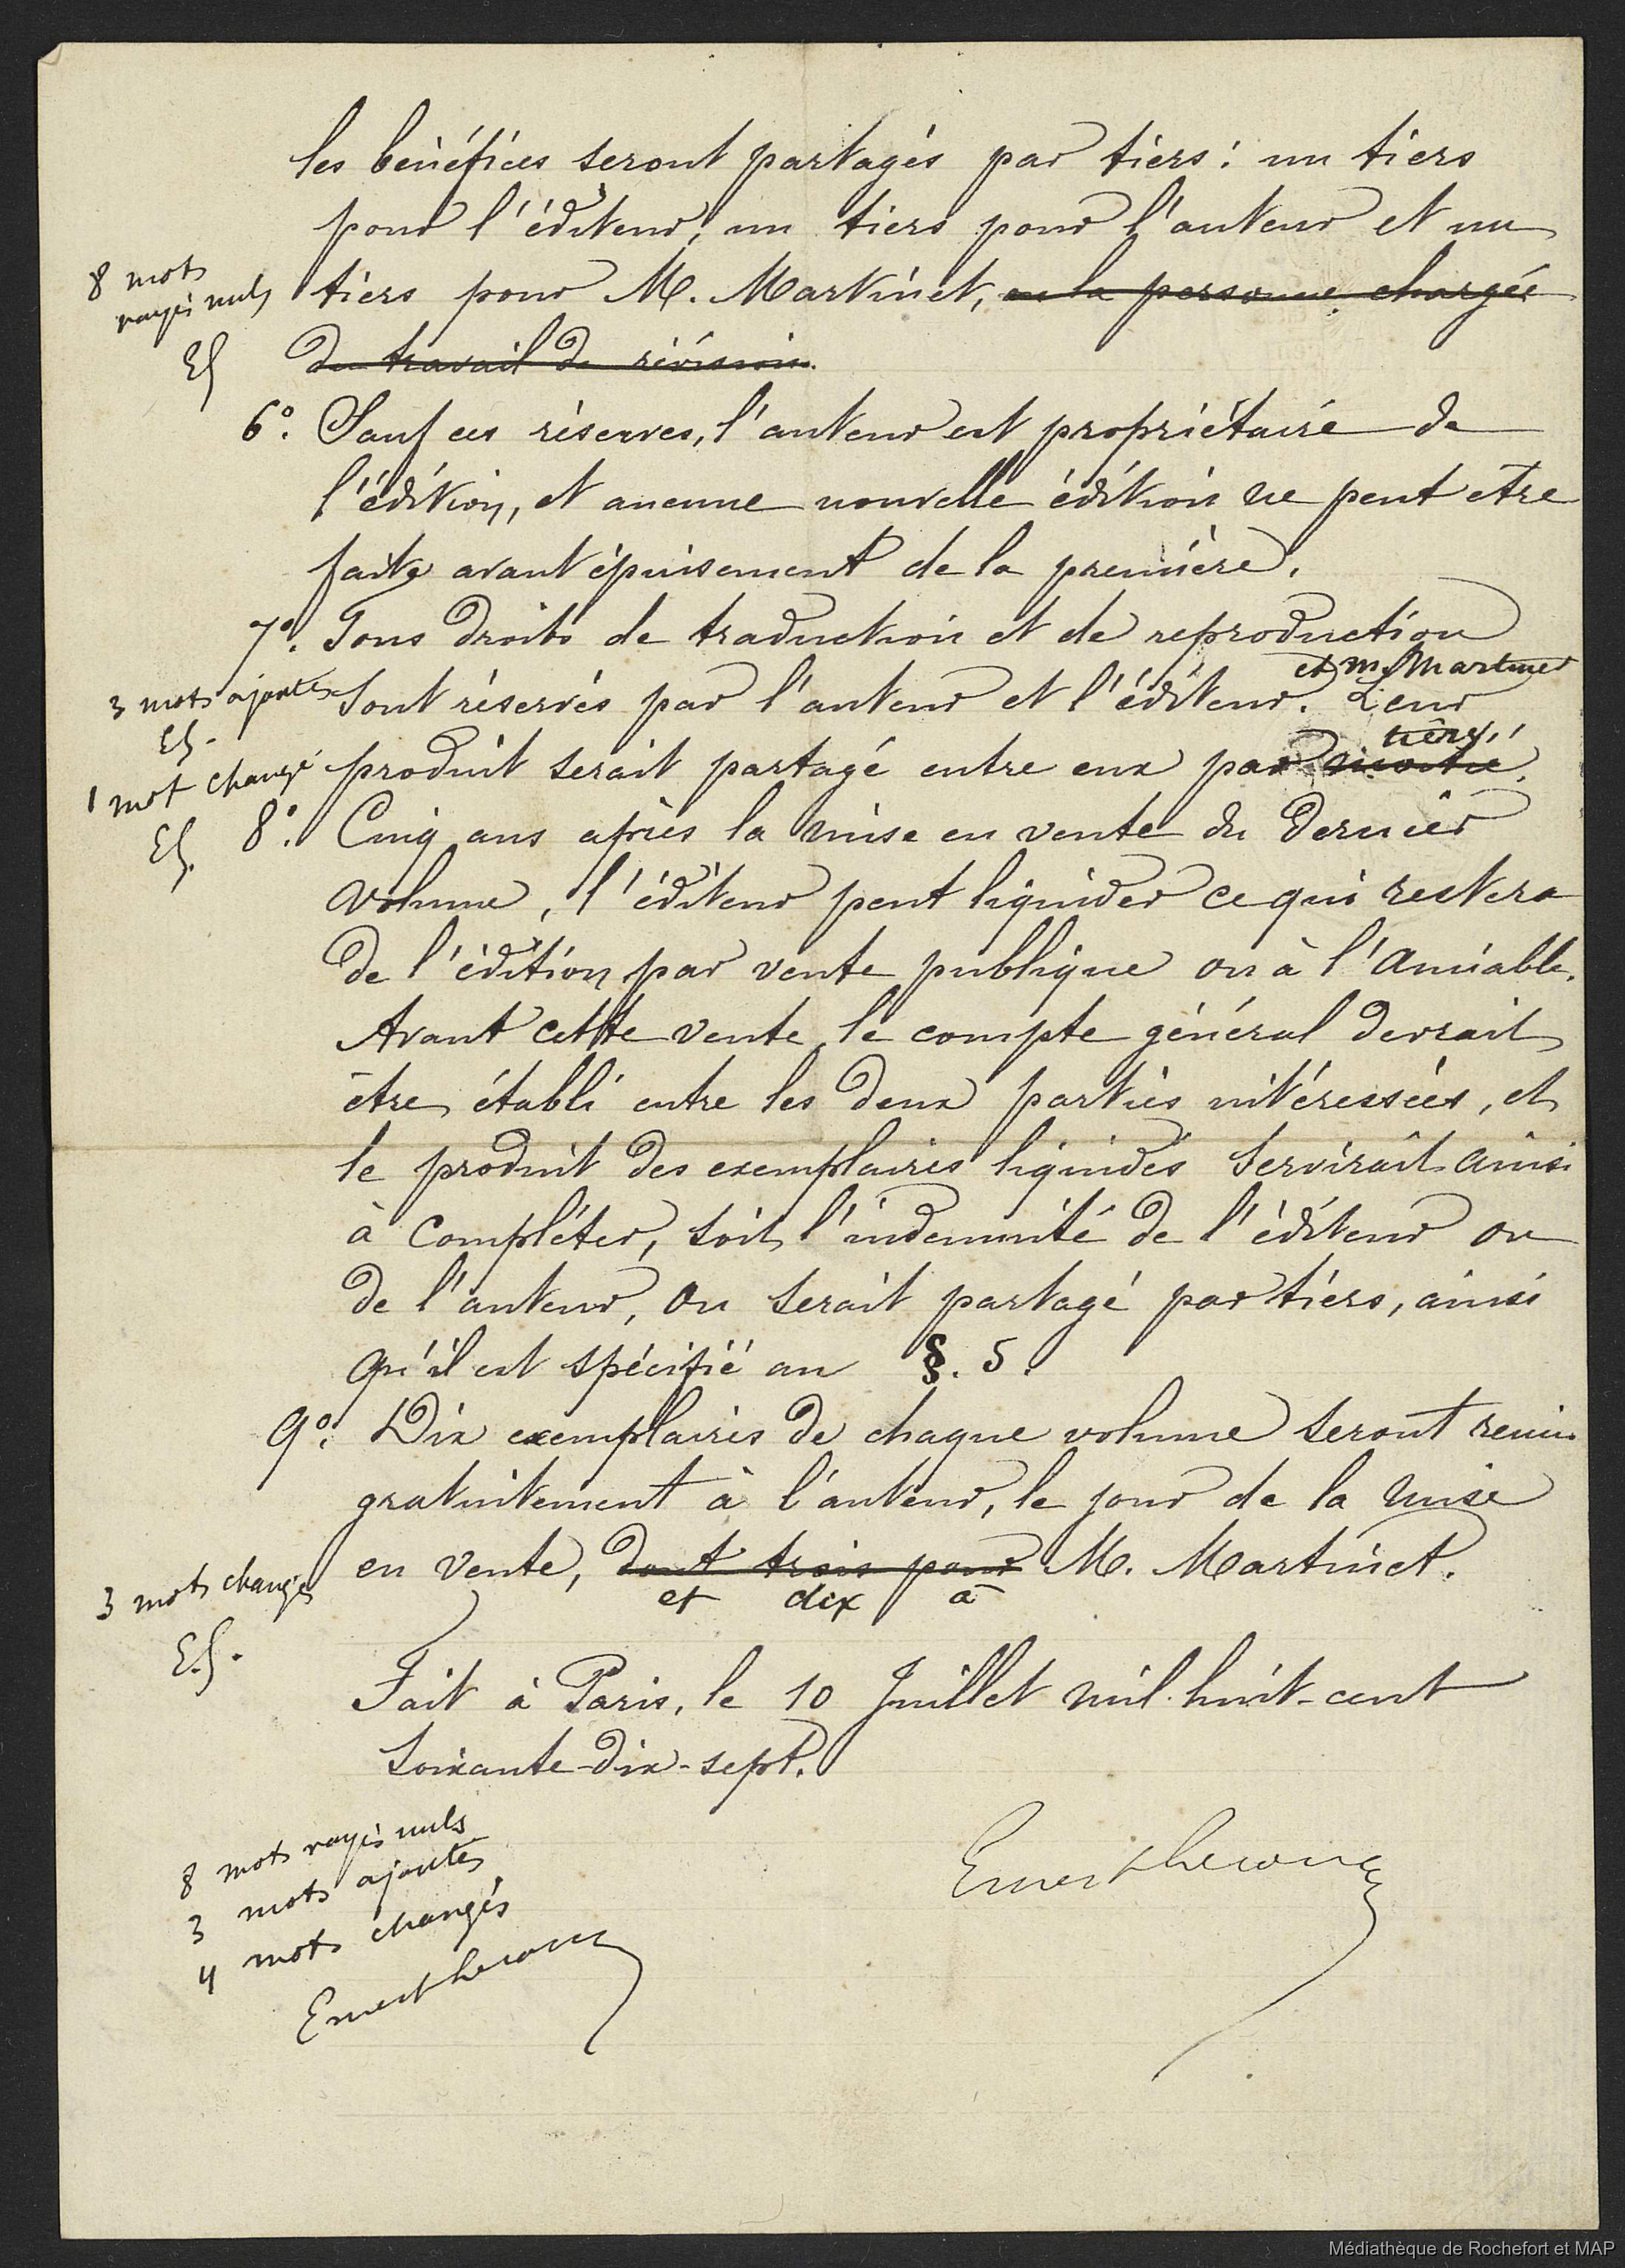 les bénéfices seront partagés par tiers : un tiers
pour l'éditeur, un tiers pour l'auteur et un
8 mots
rayés nuls
tiers pour M. Martinet, ou la personne chargée
du travail de révision.
El
6º. Sauf ces réserves, l'auteur est propriétaire de
l'édition, et aucune nouvelle édition ne peut être
faite avant épuisement de la première.
7º. Tous droits de traduction et de reproduction
et M. Martinet
3 mots ajoutés
sont réservés par l'auteur et l'éditeur. Leur
El.
tiers,
1 mot changé
produit serait partagé entre eux par moitié.
El.
8º. Cinq ans après la mise en vente du dernier
volume, l'éditeur peut liquider ce qui restera
de l'édition par vente publique ou à l'amiable.
Avant cette vente le compte général devrait
être établi entre les deux parties intéressées, et
le produit des exemplaires liquidés servirait ainsi
à compléter, soit l'indemnité de l'éditeur ou
de l'auteur, ou serait partagé par tiers, ainsi
qu'il est spécifié au §. 5.
9º. Dix exemplaires de chaque volume seront remis
gratuitement à l'auteur, le jour de la mise
en vente, dont trois pour M. Martinet.
et dix à
3 mots changés
E.l.
Fait à Paris, le 10 Juillet mil-huit-cent
soixante-dix-sept.
8 mots rayés nuls
3 mots ajoutés
4 mots changés
Ernest Leroux
Ernest Leroux
Médiathèque de Rochefort et MAP